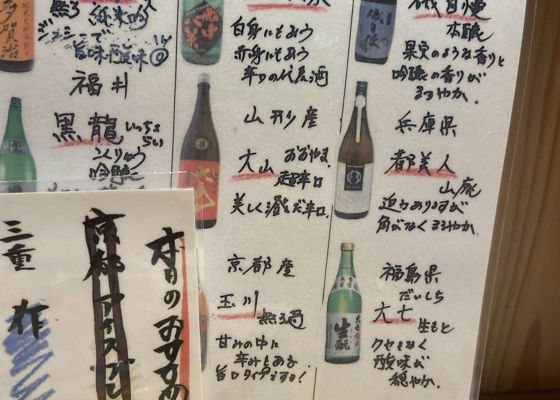 純米吟
旨味酸味
福井
黒龍 いっちょらい
こくりゅう
吟醸
白身にもあう
赤身にもあう
辛口の代表酒
山形産
大山 おおやま
超辛口
美しく澄んだ辛口。
京都産
玉川
無ろ過
甘みの中に
辛みもある
旨口タイプです!
磯自慢
本醸
果実のような香りと
吟醸の香りが
まろやか。
兵庫県
都美人
山廃
迫力ありますが
角がなくまろやか。
福島県
だいしち
大七
生もと
クセもなく
酸味が
穏やか。
生酛
本日のおすすめ
京都
三重 作